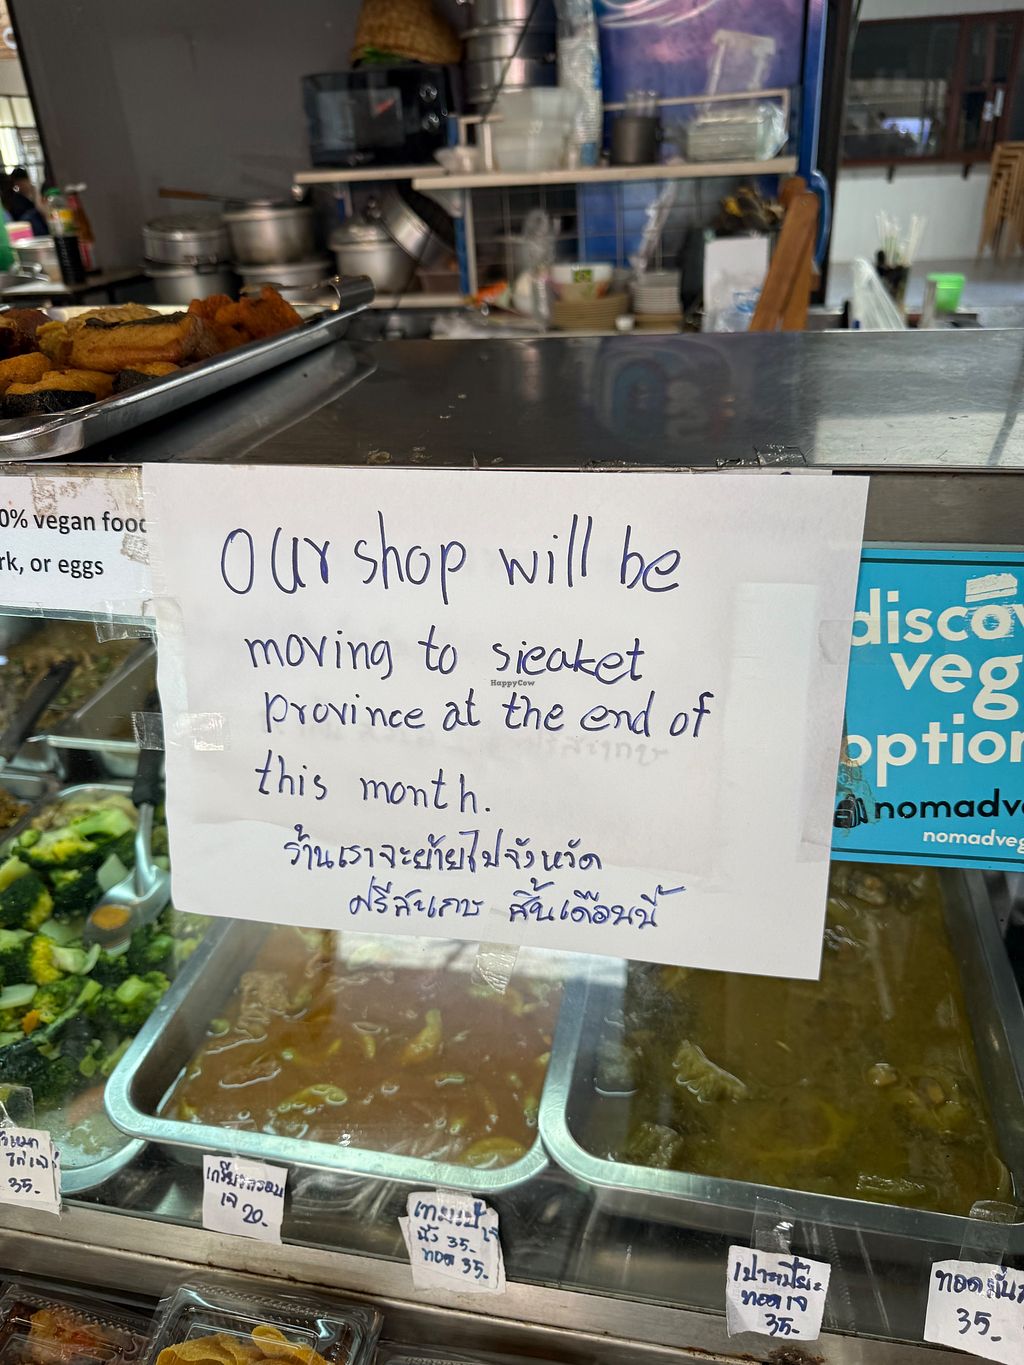 0% vegan food
rk, or eggs
Our shop will be
moving to sieaket
HappyCow
province at the end of
this month.
ร้านเราจะย้ายไปจังหวัด
ศรีสะเกษ สิ้นเดือนนี้
discov
veg
option
nomadve
nomadveg
35.-
เจ 20.-
35.-
ทอด 35.-
เปาะเปี๊ยะ
ทอดเจ
35.-
35.-